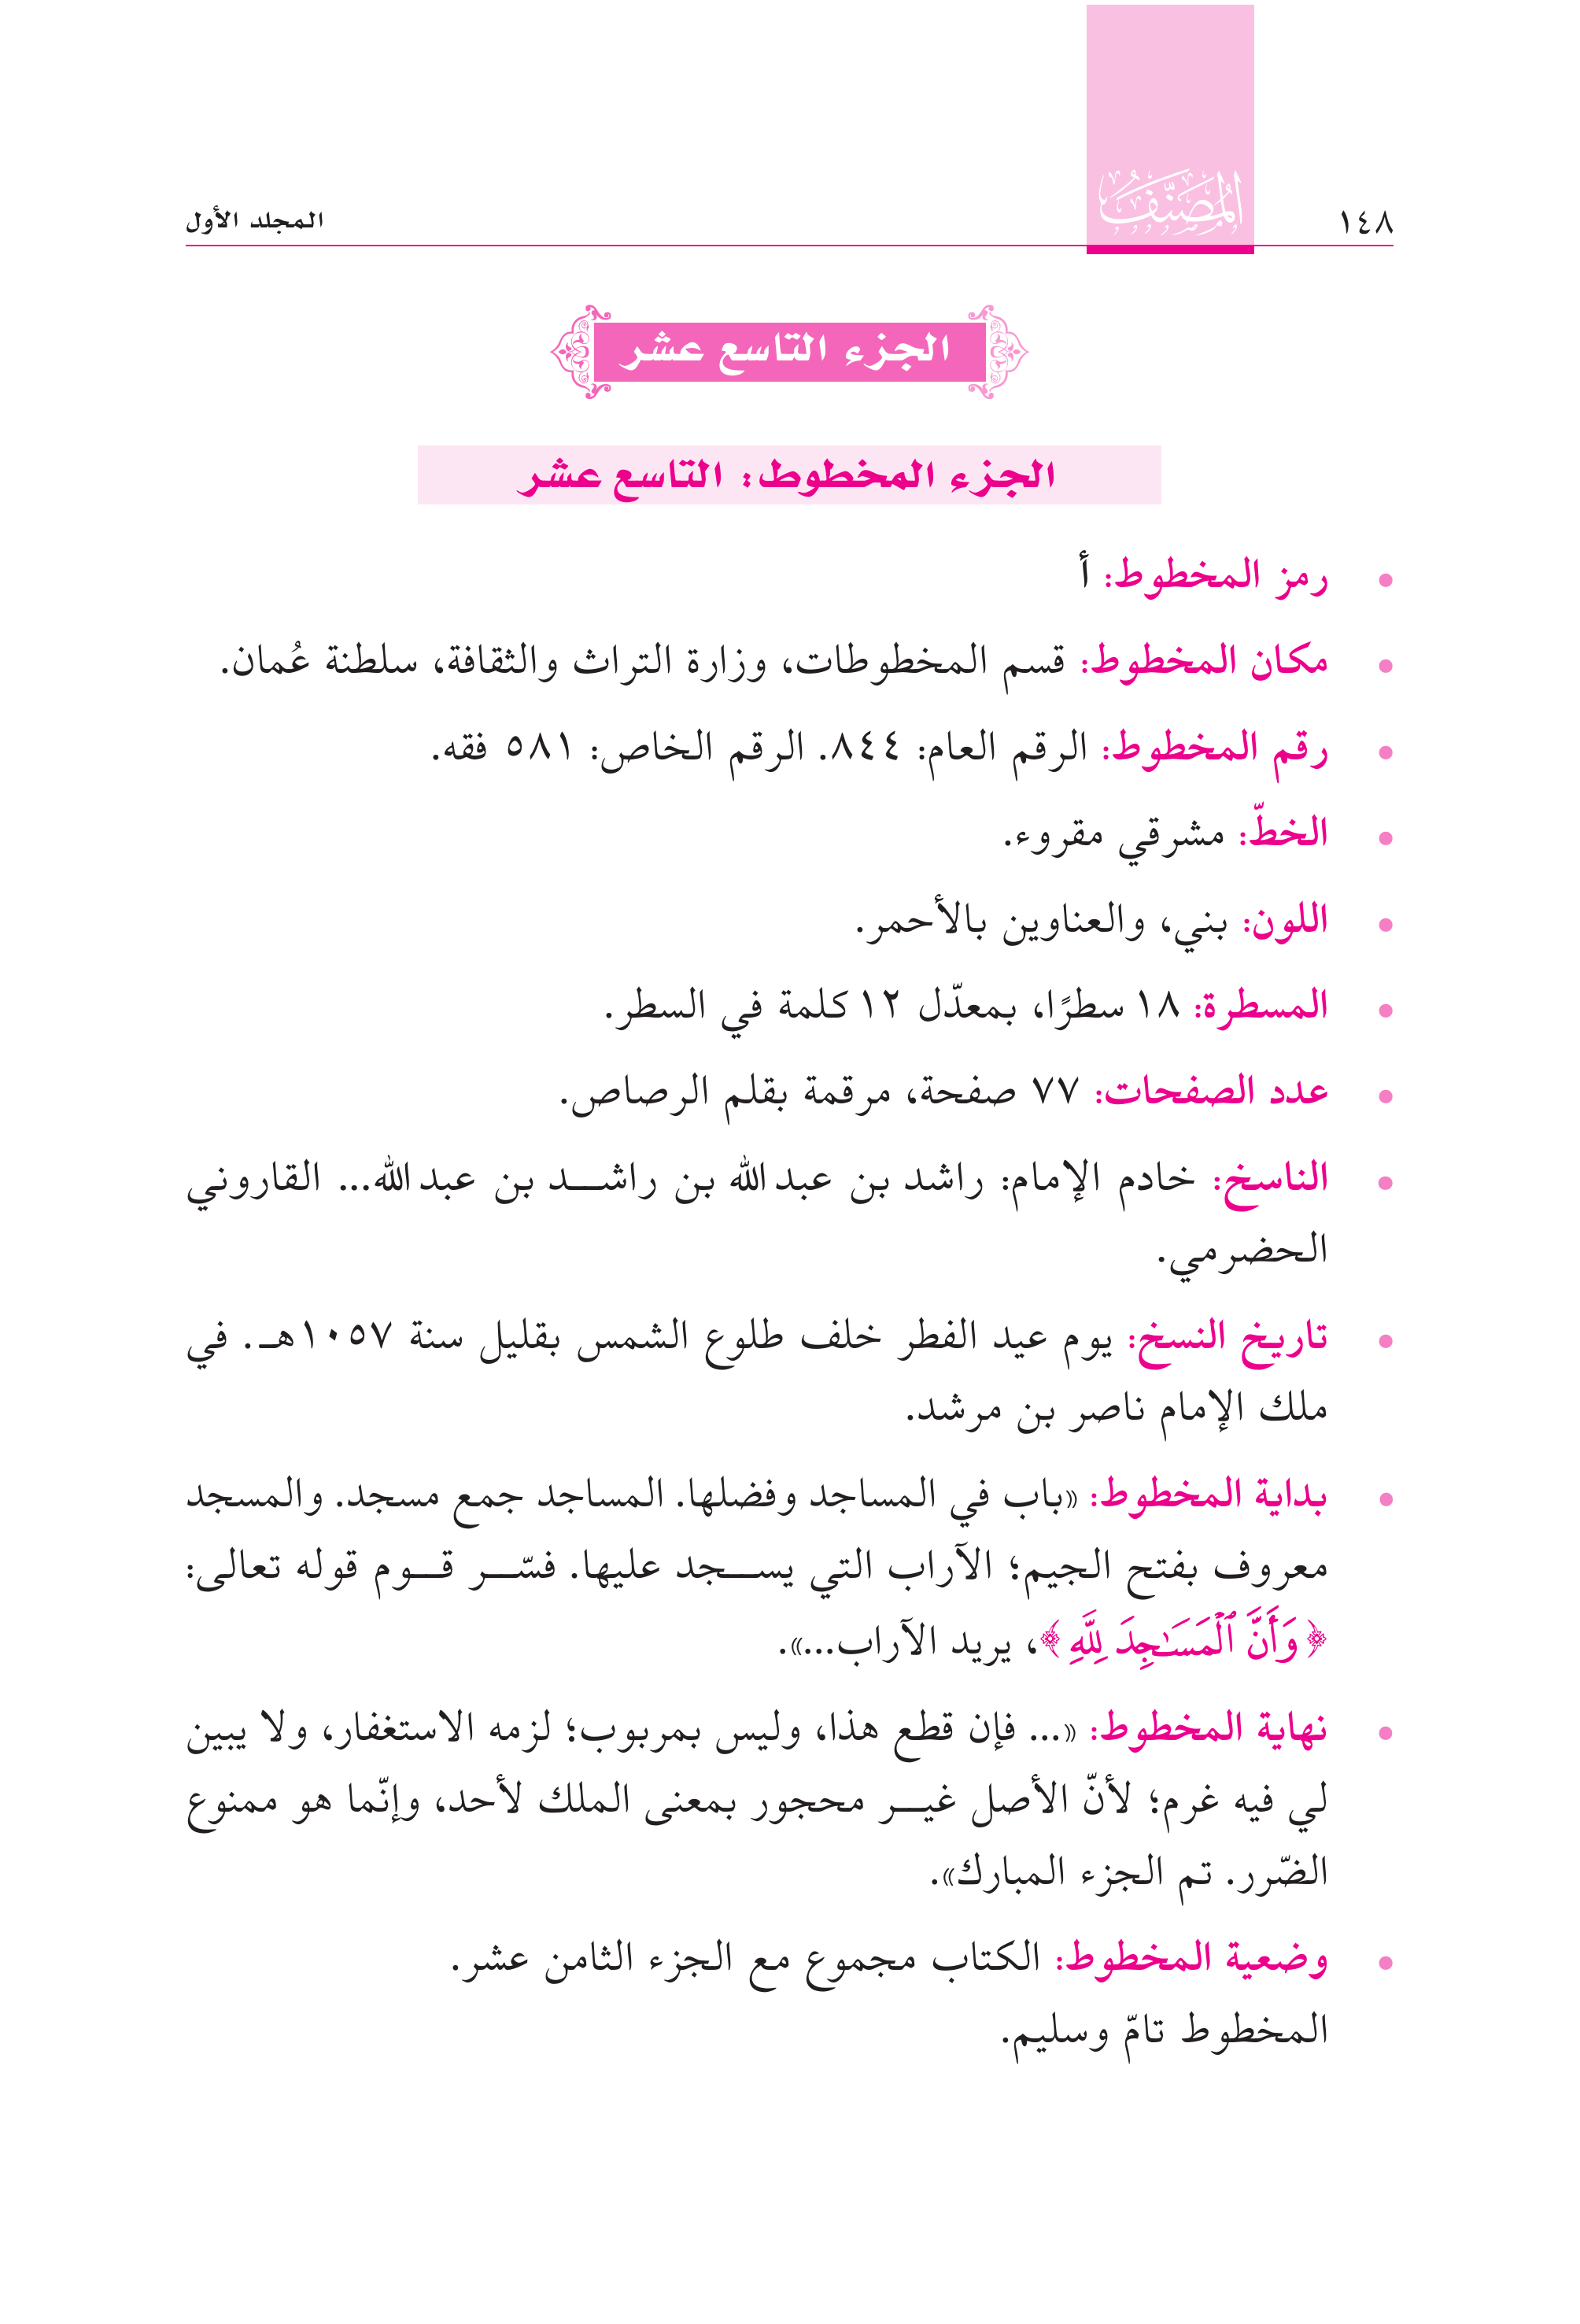 ١٤٨
المصنف
المجلد الأول
الجزء التاسع عشر
الجزء المخطوط: التاسع عشر
• رمز المخطوط: أ
• مكان المخطوط: قسم المخطوطات، وزارة التراث والثقافة، سلطنة عُمان.
• رقم المخطوط: الرقم العام: ٨٤٤. الرقم الخاص: ٥٨١ فقه.
• الخطّ: مشرقي مقروء.
• اللون: بني، والعناوين بالأحمر.
• المسطرة: ١٨ سطرًا، بمعدّل ١٢ كلمة في السطر.
• عدد الصفحات: ٧٧ صفحة، مرقمة بقلم الرصاص.
• الناسخ: خادم الإمام: راشد بن عبدالله بن راشـــد بن عبدالله... القاروني
الحضرمي.
• تاريخ النسخ: يوم عيد الفطر خلف طلوع الشمس بقليل سنة ١٠٥٧هـ. في
ملك الإمام ناصر بن مرشد.
• بداية المخطوط: «باب في المساجد وفضلها. المساجد جمع مسجد. والمسجد
معروف بفتح الجيم؛ الآراب التي يســـجد عليها. فسّـــر قـــوم قوله تعالى:
﴿وَأَنَّ ٱلْمَسَـٰجِدَ لِلَّهِ﴾، يريد الآراب...».
• نهاية المخطوط: «... فإن قطع هذا، وليس بمربوب؛ لزمه الاستغفار، ولا يبين
لي فيه غرم؛ لأنّ الأصل غيـــر محجور بمعنى الملك لأحد، وإنّما هو ممنوع
الضّرر. تم الجزء المبارك».
• وضعية المخطوط: الكتاب مجموع مع الجزء الثامن عشر.
المخطوط تامّ وسليم.